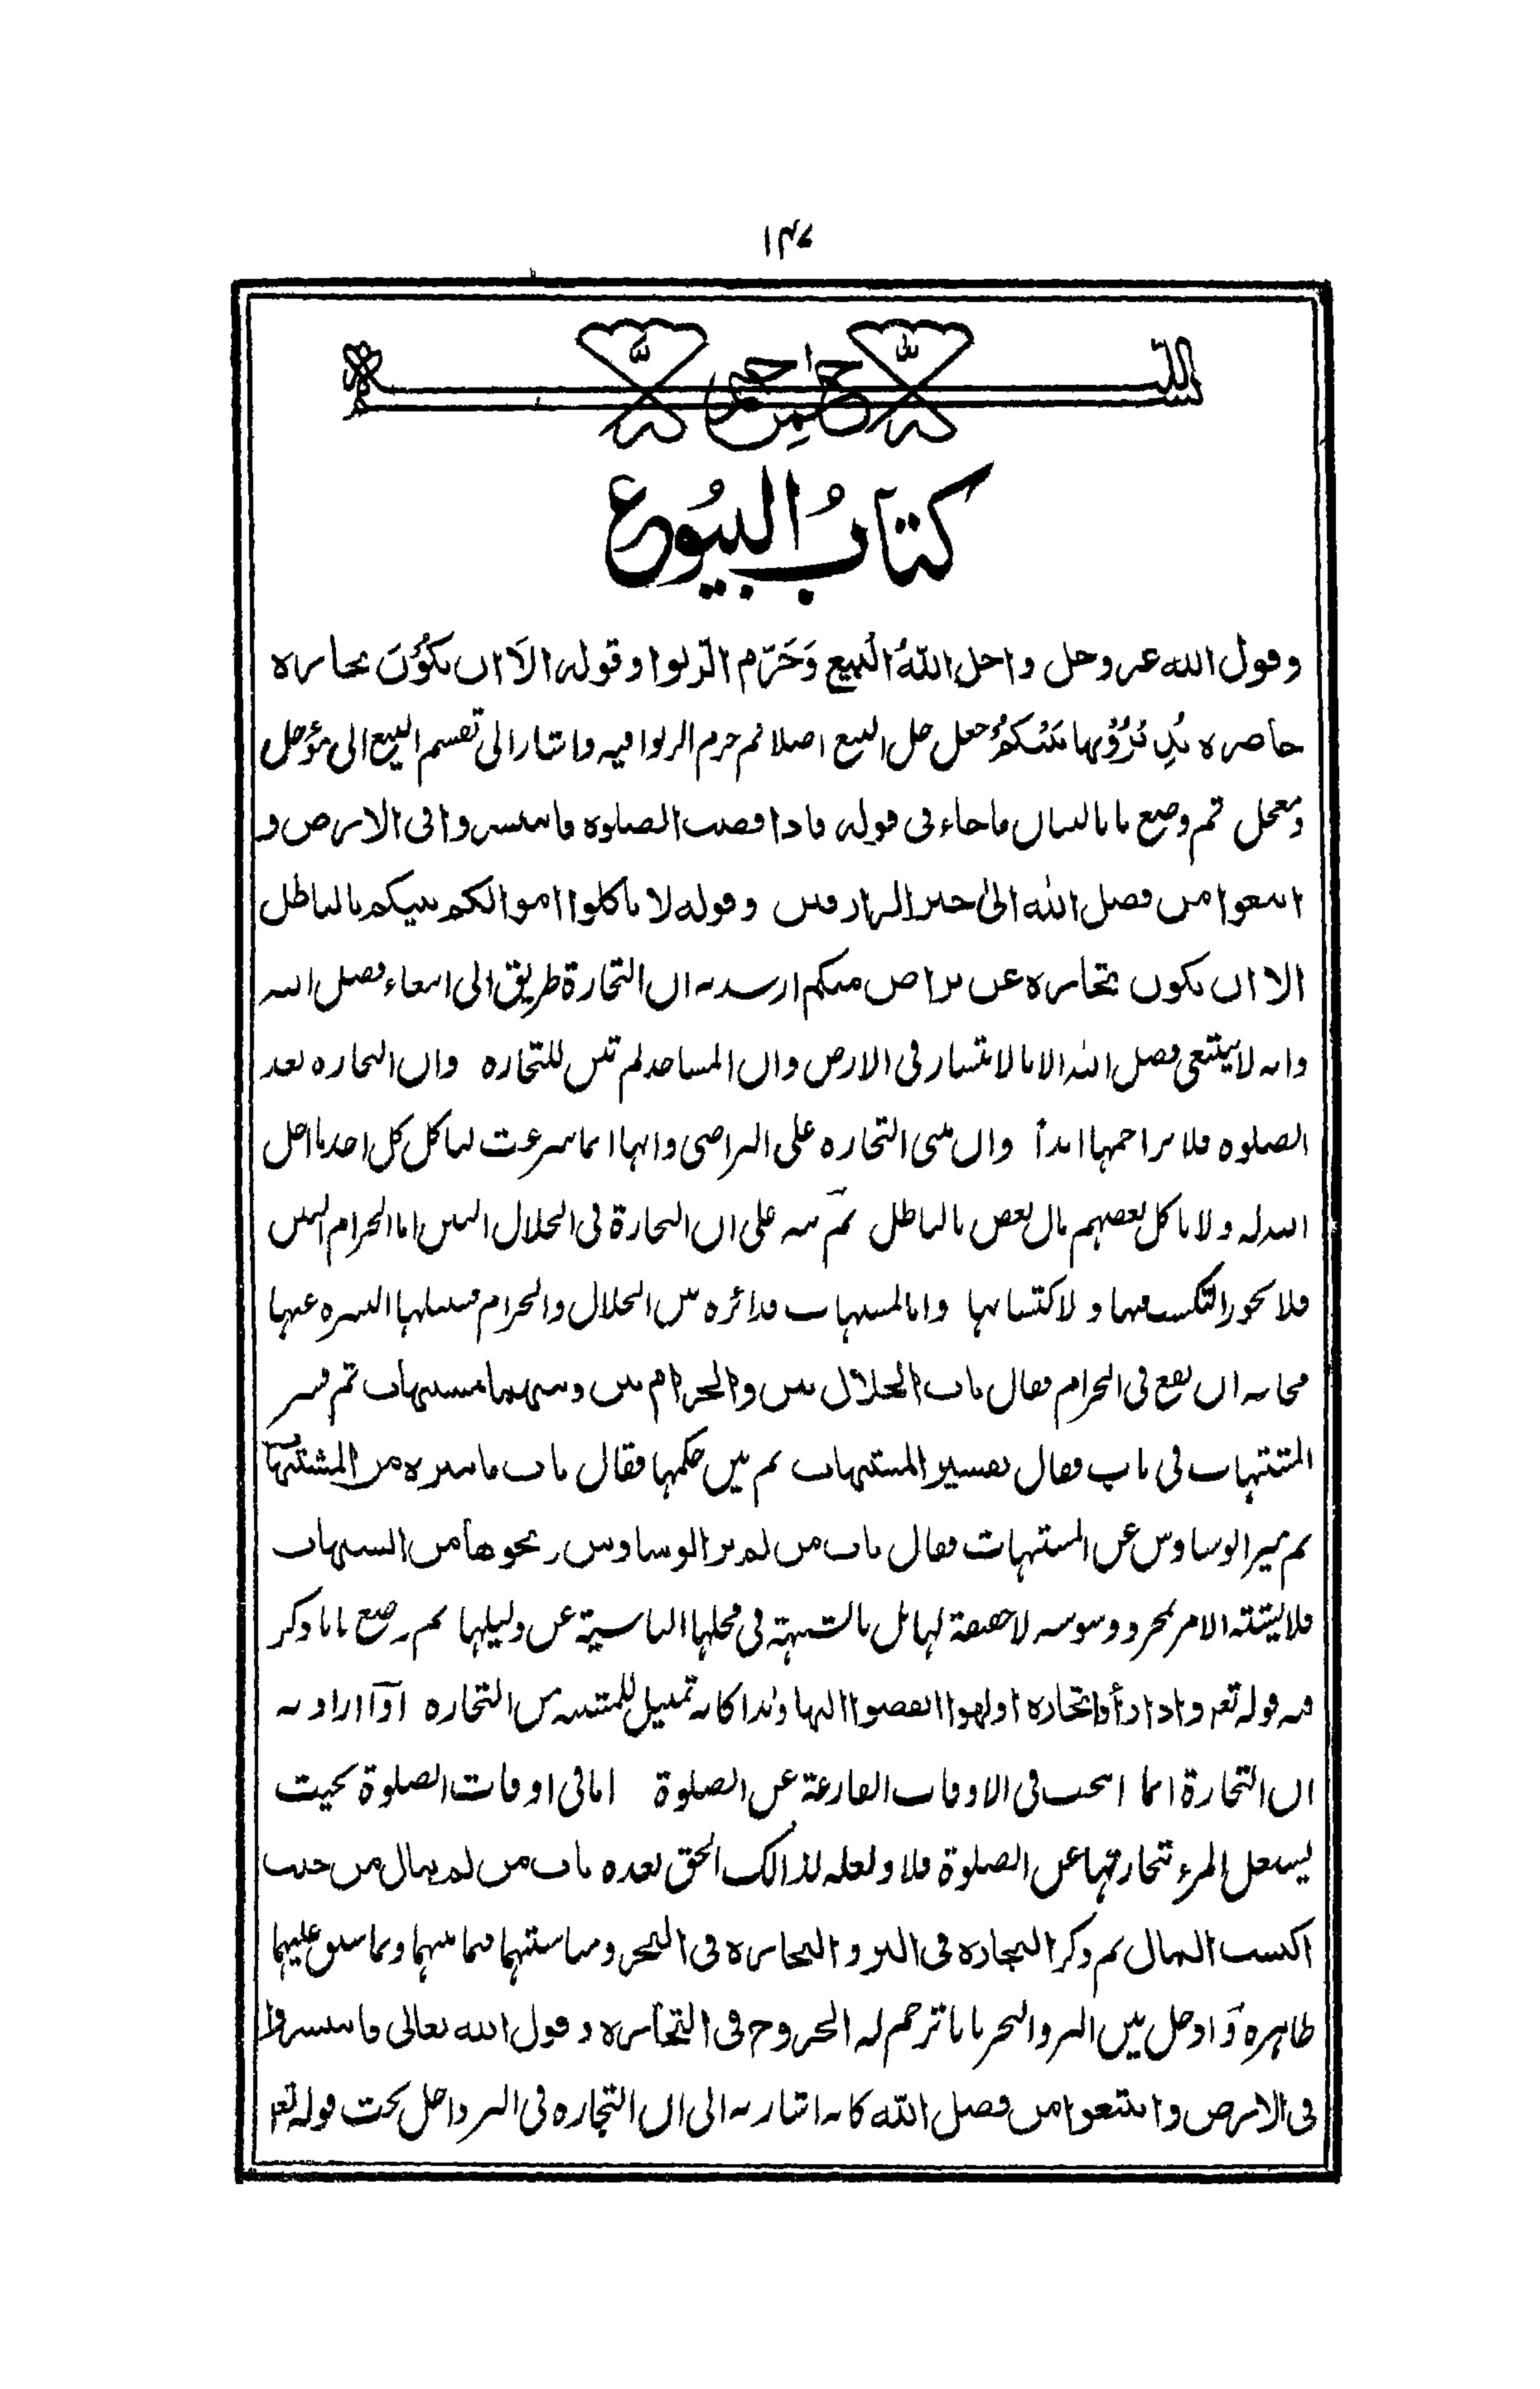 ۱۴۷
بسم الله الرحمن الرحيم
كتاب البيوع
وقول الله عز وجل واحل اللهُ البيع وَحَرّم الرّبوا وقوله الاَ ان تكوُنَ تجارة
حاضرة تُدِيرُوْنها بَيْنَكُمْ جعل حل البيع اصلا ثم حرم الربوا فيه واشار الى تقسيم البيع الى مؤجل
ومعجل ثم وضع بابا لبيان ما جاء فى قوله فاذا قضيت الصلوة فانتشروا فى الارض و
ابتغوا من فضل الله الى خير الرازقين وقوله لا تاكلوا اموالكم بينكم بالباطل
الا ان تكون تجارة عن تراض منكم ارشد به ان التجارة طريق الى ابتغاء فضل الله
وانه لا يبتغى فضل الله الا بالانتشار فى الارض وان المساجد لم تبن للتجارة وان التجارة بعد
الصلوة فلا تزاحمها ابداً وان مبنى التجارة على التراضى وانها انما شرعت لياكل كل احد ما احل
الله له ولا ياكل بعضهم مال بعض بالباطل ثم نبه على ان التجارة فى الحلال البين اما الحرام البين
فلا يجوز التكسب فيها و لا كتسابها واما المشبهات فدائرة بين الحلال والحرام فسبيلها التنزه عنها
مخافة ان يقع فى الحرام فقال باب الحلال بين والحرام بين وبينهما مشبهات ثم فسر
المشتبهات فى باب فقال تفسير المشبهات ثم بين حكمها فقال باب ما يتنزه من المشتبهات
ثم ميز الوساوس عن المشتبهات فقال باب من لم ير الوساوس ونحوها من الشبهات
فلا يشتبه الامر بمجرد وسوسة لا حقيقة لها بل بالشبهة فى محلها الناشية عن دليلها ثم وضع بابا وذكر
فيه قوله تعـ واذا رأوا تجارة او لهوا انفضوا اليها وهذا كانه تمثيل للمشتبه من التجارة او اراد به
ان التجارة انما ابيحت فى الاوقات الفارغة عن الصلوة اما فى اوقات الصلوة بحيث
ليشغل المرء تجارتها عن الصلوة فلا ولعله لذالك الحق بعده باب من لم يبال من حيث
اكتسب المال ثم ذكر التجارة فى البر و التجارة فى البحر ومناسبتهما فيما بينهما وبما سبق عليهما
ظاهرة وادخل بين البر والبحر بابا ترجم له الخروج فى التجارة وقول الله تعالى فانتشروا
فى الارض وابتغوا من فضل الله كانه اشار به الى ان التجارة فى البر داخل تحت قوله تعـ